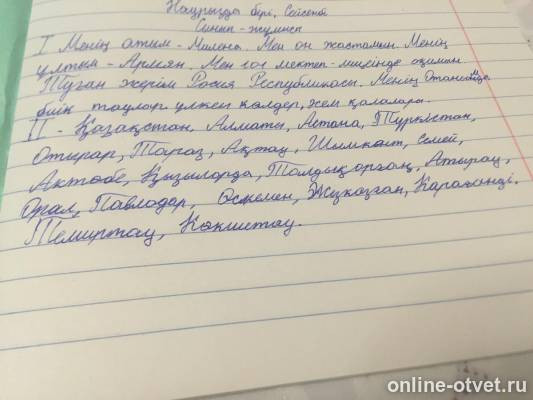 Наурызды бірі, Сейсенбі
Сынып-жұмысы
I Менің атым - Милена. Мен он жастамын. Менің
ұлтым - Армян. Мен 101 мектеп-мисінде оқимын.
Туған жерім Росия Республикасы. Менің Отанымда
биік таулар үлкен көлдер, кем қалалары.
II - Қазақстан. Алматы, Астана, Түркістан,
Отырар, Тараз, Ақтау, Шымкент, Семей,
Актобе, Қызылорда, Талдықорған, Атырау,
Орал, Павлодар, Өскемен, Жезказган, Караганді.
Темиртау, Көкшетау.
online-otvet.ru